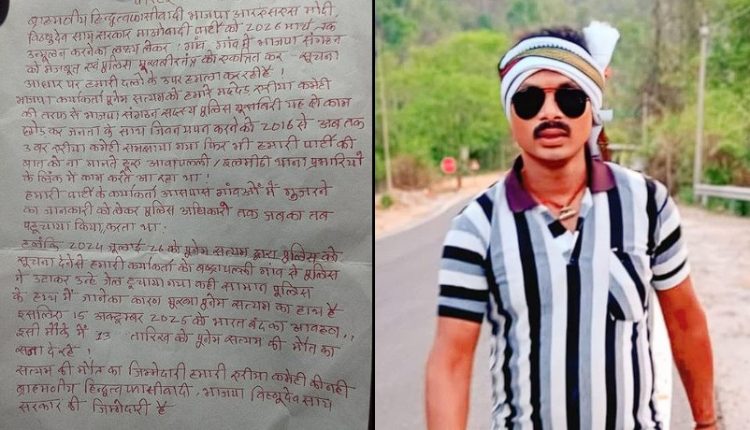 ब्राहमणीय हिन्दुत्वफासीवादी भाजपा आरएसएस मोदी,
विष्णुदेव साय सरकार माओवादी पार्टी को 2026 मार्च तक
उन्मूलन करने का लक्ष्य लेकर। गांव, गांव में भाजपा संगठन
को मजबूत एवं पुलिस मुखबीर तंत्र को एकत्रित कर - सूचना
आधार पर हमारी दलो के उपर हमला कर रही है!
भाजपा कर्यकर्ता पुनेम सत्यम को हमने मद्देड़ एरीया कमेटी
की तरफ से भाजपा संगठन सदस्य पुलिस मुखबिरी यह दो काम
छोड़ कर जनता के साथ जिवन यापन करने को 2016 से अब तक
3 बार एरीया कमेटी समझाया गया फिर भी हमारी पार्टी की
बात को ना मानते हुए आवापल्ली / इलमीडी थाना प्रभारियों
के लिंक में काम करते आ रहा था!
हमारी पार्टी के कर्यकर्ता आसपास गांवओं में गुजरने
का जानकारी को लेकर पुलिस अधिकारी तक जबका तब
पहूचाया किया, करता था।
2024 जूलाई 26 को पुनेम सत्यम द्वारा पुलिस को
सूचना देने से हमारी कर्यकर्ता को गांव से पुलिस
ने उठाकर उन्हे जेल पहूचाया गया कही सामान पुलिस
के हाथ में जाने का कारण मुख्य पुनेम सत्यम का हाथ है
इसलिए 15 अक्टूबर 2025 को भारत बंद का आवहन,,
इसी मौके में 13 तारिख को पुनेम सत्यम की मौत का
सजा दे रहे!
सत्यम की मौत का जिम्मेदारी हमारी एरीया कमेटी की नही
ब्राहमणीय हिन्दुत्वफासीवादी, भाजपा विष्णुदेव साय
सरकार की जिम्मेदारी है